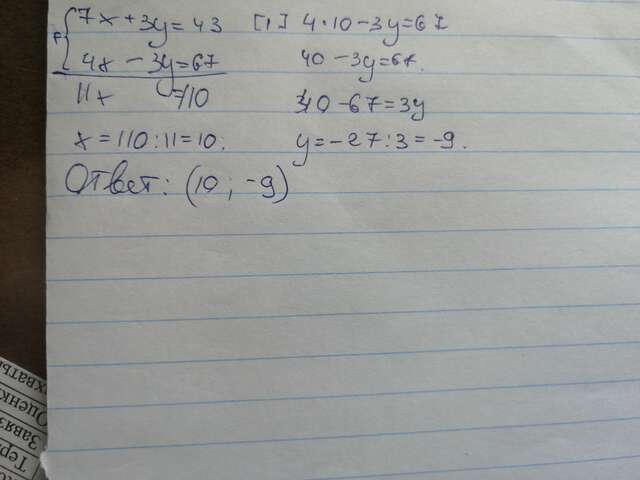 7x + 3y = 43
4x - 3y = 67
11x = 110
x = 110 : 11 = 10.
[1] 4·10 - 3y = 67
40 - 3y = 67.
40 - 67 = 3y
y = -27 : 3 = -9.
Ответ: (10 ; -9)
Оценк
Завяз
Тер